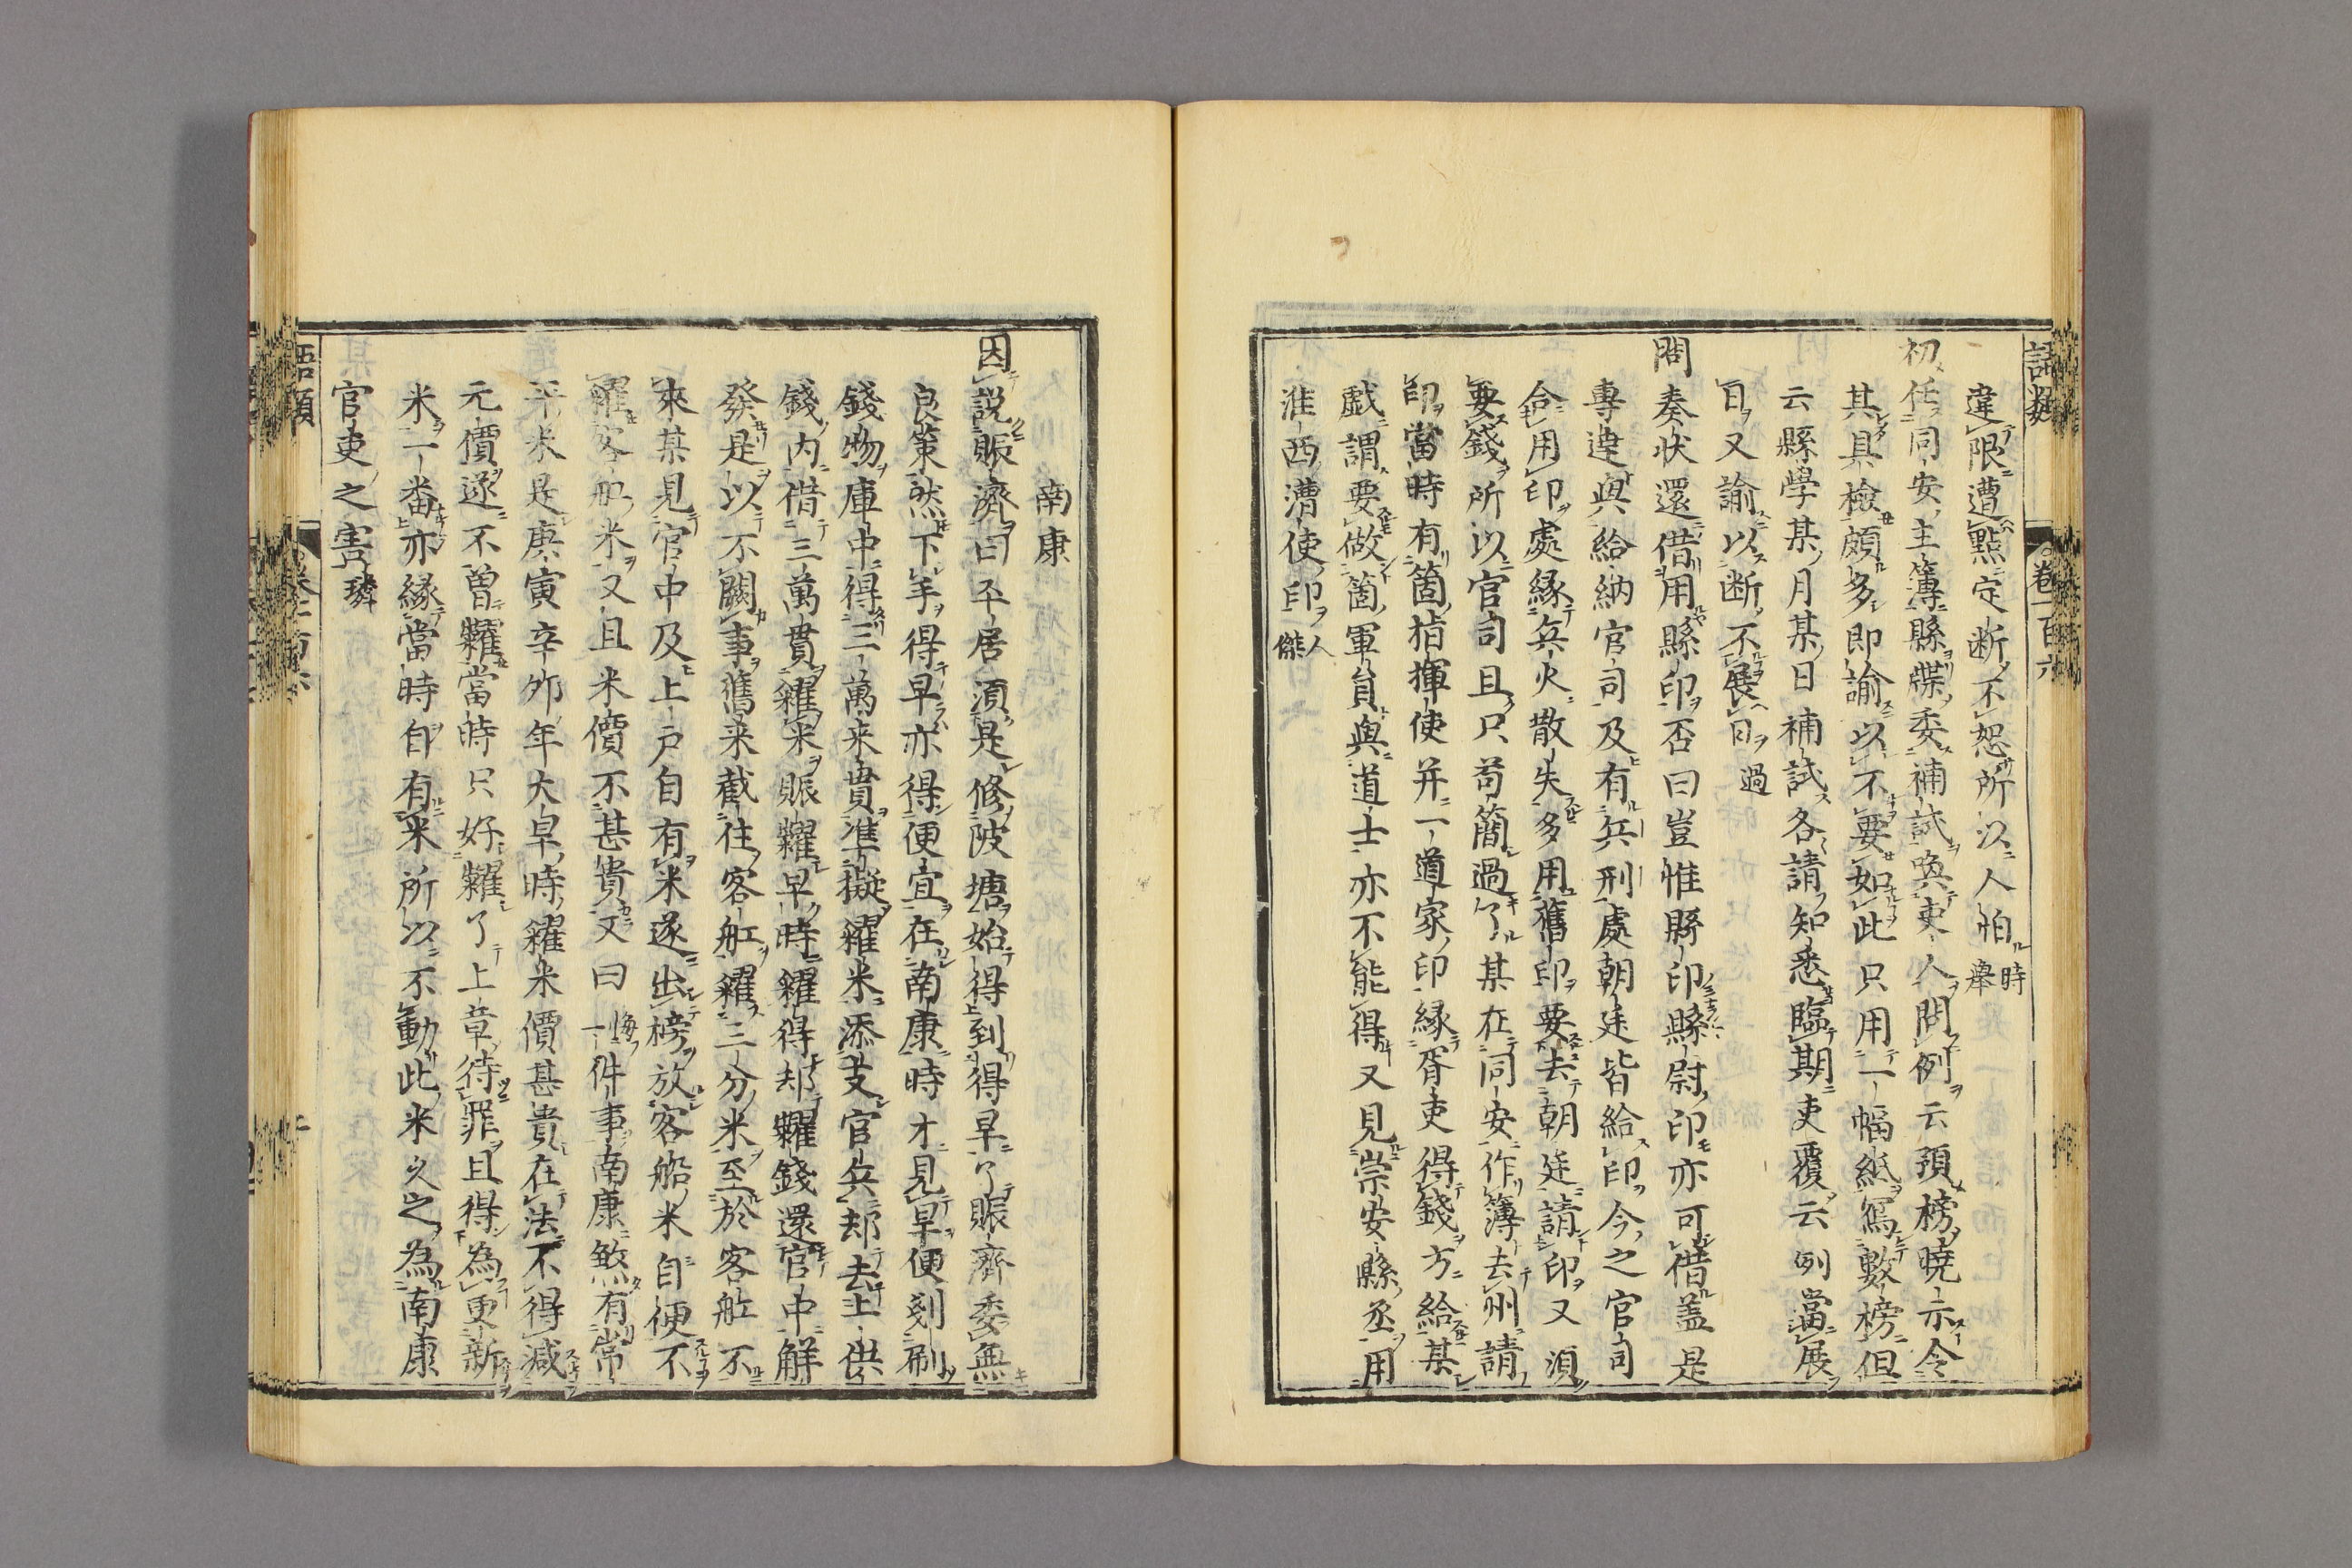 語類 卷一百六
違限遭點定断不恕所以人怕時舉
初任同安主簿縣牒委補試喚吏人問例云預榜暁示令
其具檢頗多即諭以不要如此只用一幅紙寫數榜但
云縣學某月某日補試各請知悉臨期吏覆云例當展
日又諭以断不展日過
問奏状還借用縣印否曰豈惟縣印縣尉印亦可借盖是
專達與給納官司及有兵刑處朝廷皆給印今之官司
合用印處縁兵火散失多用舊印要去朝廷請印又湏
要錢所以官司且只苟簡過了某在同安作簿去州請
印當時有箇指揮使并一道家印縁胥吏得錢方給某
戯謂要做箇軍員與道士亦不能得又見崇安縣丞用
淮西漕使印人傑
南康
因説賑濟曰平居湏是修陂塘始得到得旱了賑濟委無
良策然下手得早亦得便宜在南康時才見旱便剗刷
錢物庫中得三萬来貫準擬糴米添支官兵却去上供
錢内借三萬貫糴米賑糶早時糴得却糶錢還官中解
發是以不闕事舊来截住客舡糴三分米至於客舡不
來某見官中及上戸自有米遂出榜放客船米自便不
糴客舡米又且米價不甚貴又曰悔一件事南康煞有常
平米是庚寅辛夘年大旱時糴米價甚貴在法不得減
元價遂不曽糶當時只好糶了上章待罪且得為更新
米一番亦縁當時自有米所以不動此米久之為南康
官吏之害璘
語類